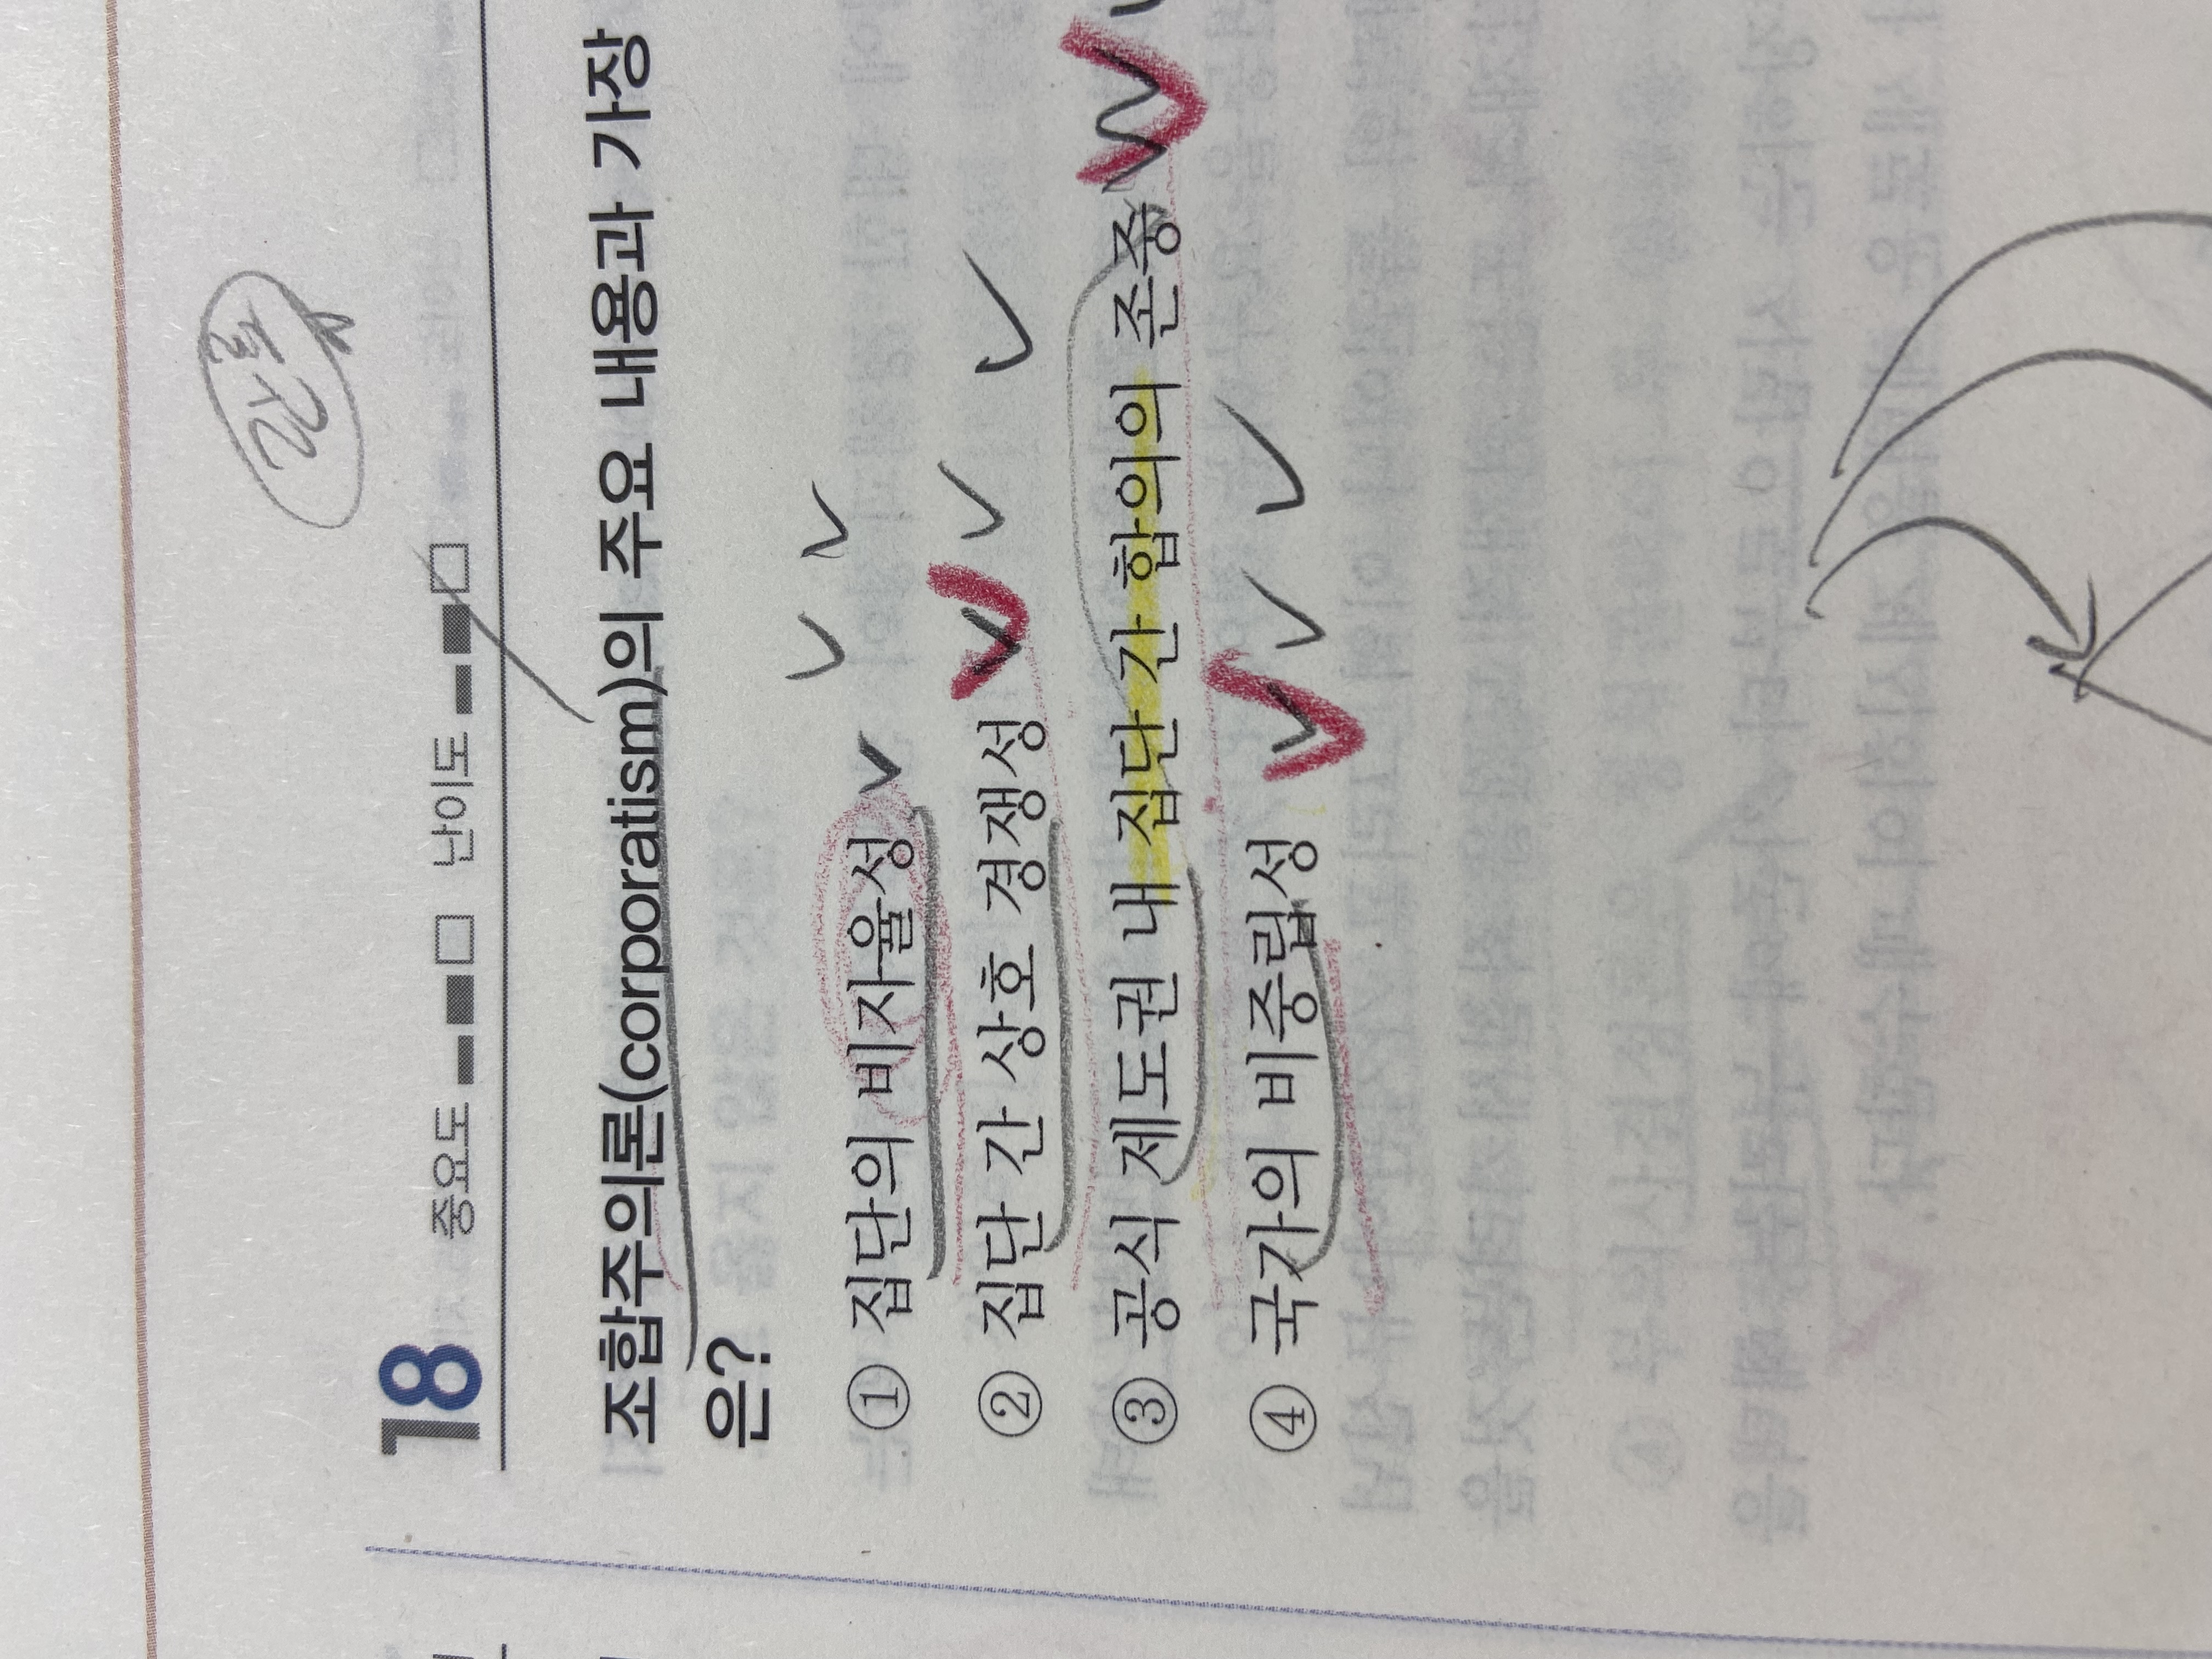 18 중요도 난이도
조합주의론(corporatism)의 주요 내용과 가장
은?
① 집단의 비자율성
② 집단 간 상호 경쟁성
③ 공식 제도권 내 집단 간 합의의 존중
④ 국가의 비중립성